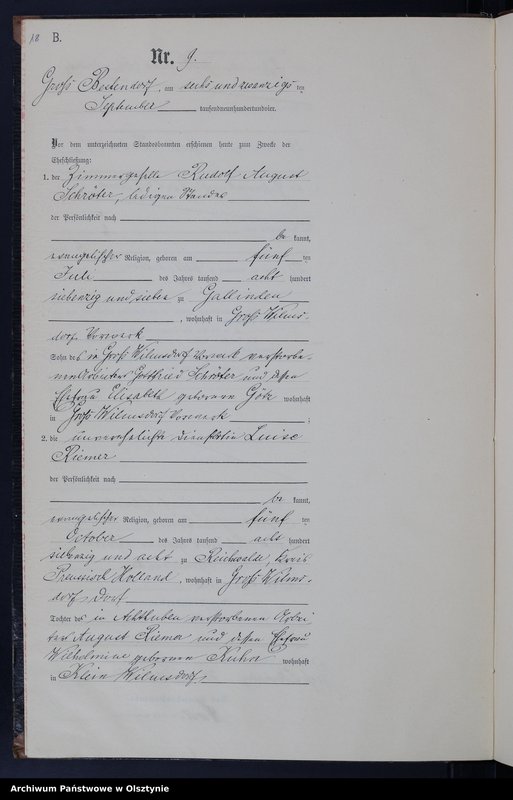 18 B.
Nr. 9.
Groß Bestendorf, am sechs und zwanzigs ten
September tausendneunhundertundvier.
Vor dem unterzeichneten Standesbeamten erschienen heute zum Zwecke der
Eheschließung:
1. der Zimmergeselle Rudolf August
Schröter, ledigen Standes
der Persönlichkeit nach
be kannt,
evangelischer Religion, geboren am fünf ten
Juli des Jahres tausend acht hundert
siebenzig und sieben zu Gallinden
, wohnhaft in Groß Wilms-
dorf Vorwerk
Sohn des in Groß Wilmsdorf Vorwerk verstorbe-
nen Arbeiters Gottfried Schröter und dessen
Ehefrau Elisabeth geborenen wohnhaft
in Groß Wilmsdorf Vorwerk ;
2. die unverehelichte Luise
Riemer
der Persönlichkeit nach
be kannt,
evangelischer Religion, geboren am fünf ten
October des Jahres tausend acht hundert
siebenzig und acht zu Reichwalde, Kreis
Preussisch Holland, wohnhaft in Groß Wilms-
dorf Dorf
Tochter des in Achthuben verstorbenen Arbei
ters August Riemer und dessen Ehefrau
Wilhelmine geborenen Kuhn wohnhaft
in Klein Wilmsdorf,
Archiwum Państwowe w Olsztynie